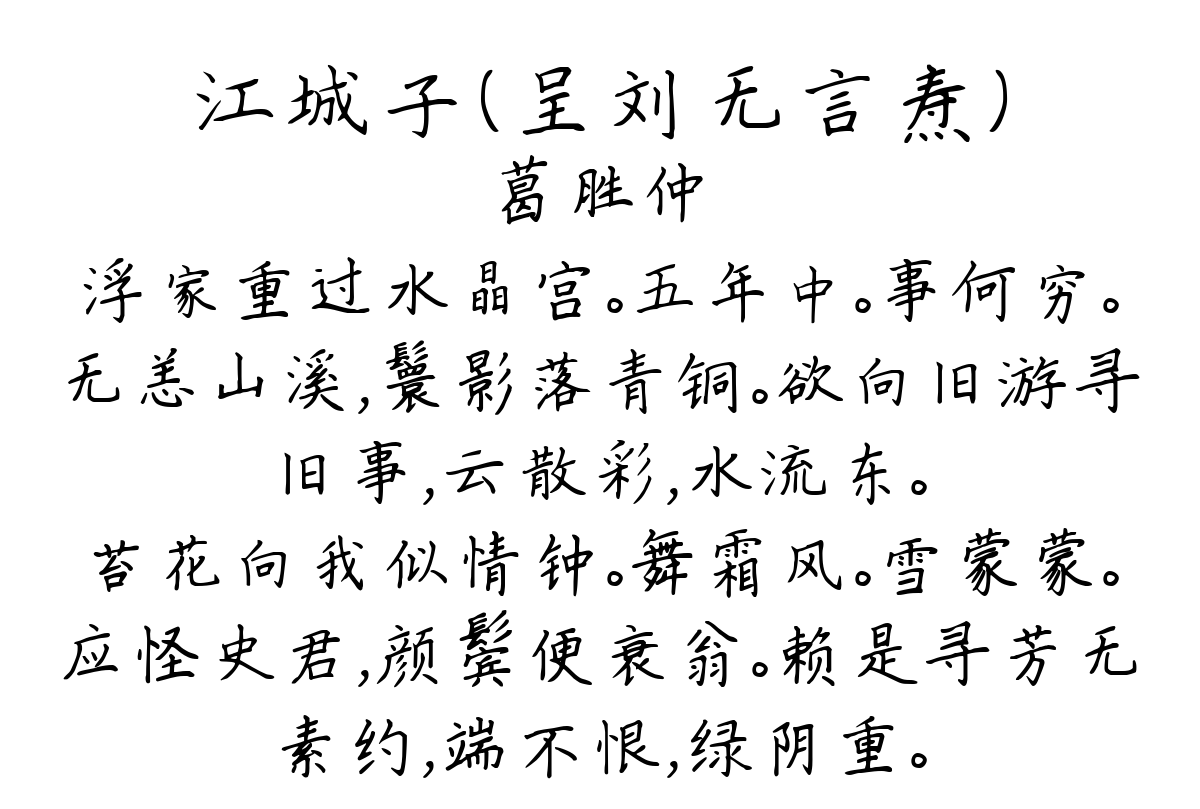 江城子(呈刘无言焘)
葛胜仲
浮家重过水晶宫。五年中。事何穷。
无恙山溪,鬟影落青铜。欲向旧游寻
旧事,云散彩,水流东。
苔花向我似情钟。舞霜风。雪蒙蒙。
应怪史君,颜鬓便衰翁。赖是寻芳无
素约,端不恨,绿阴重。